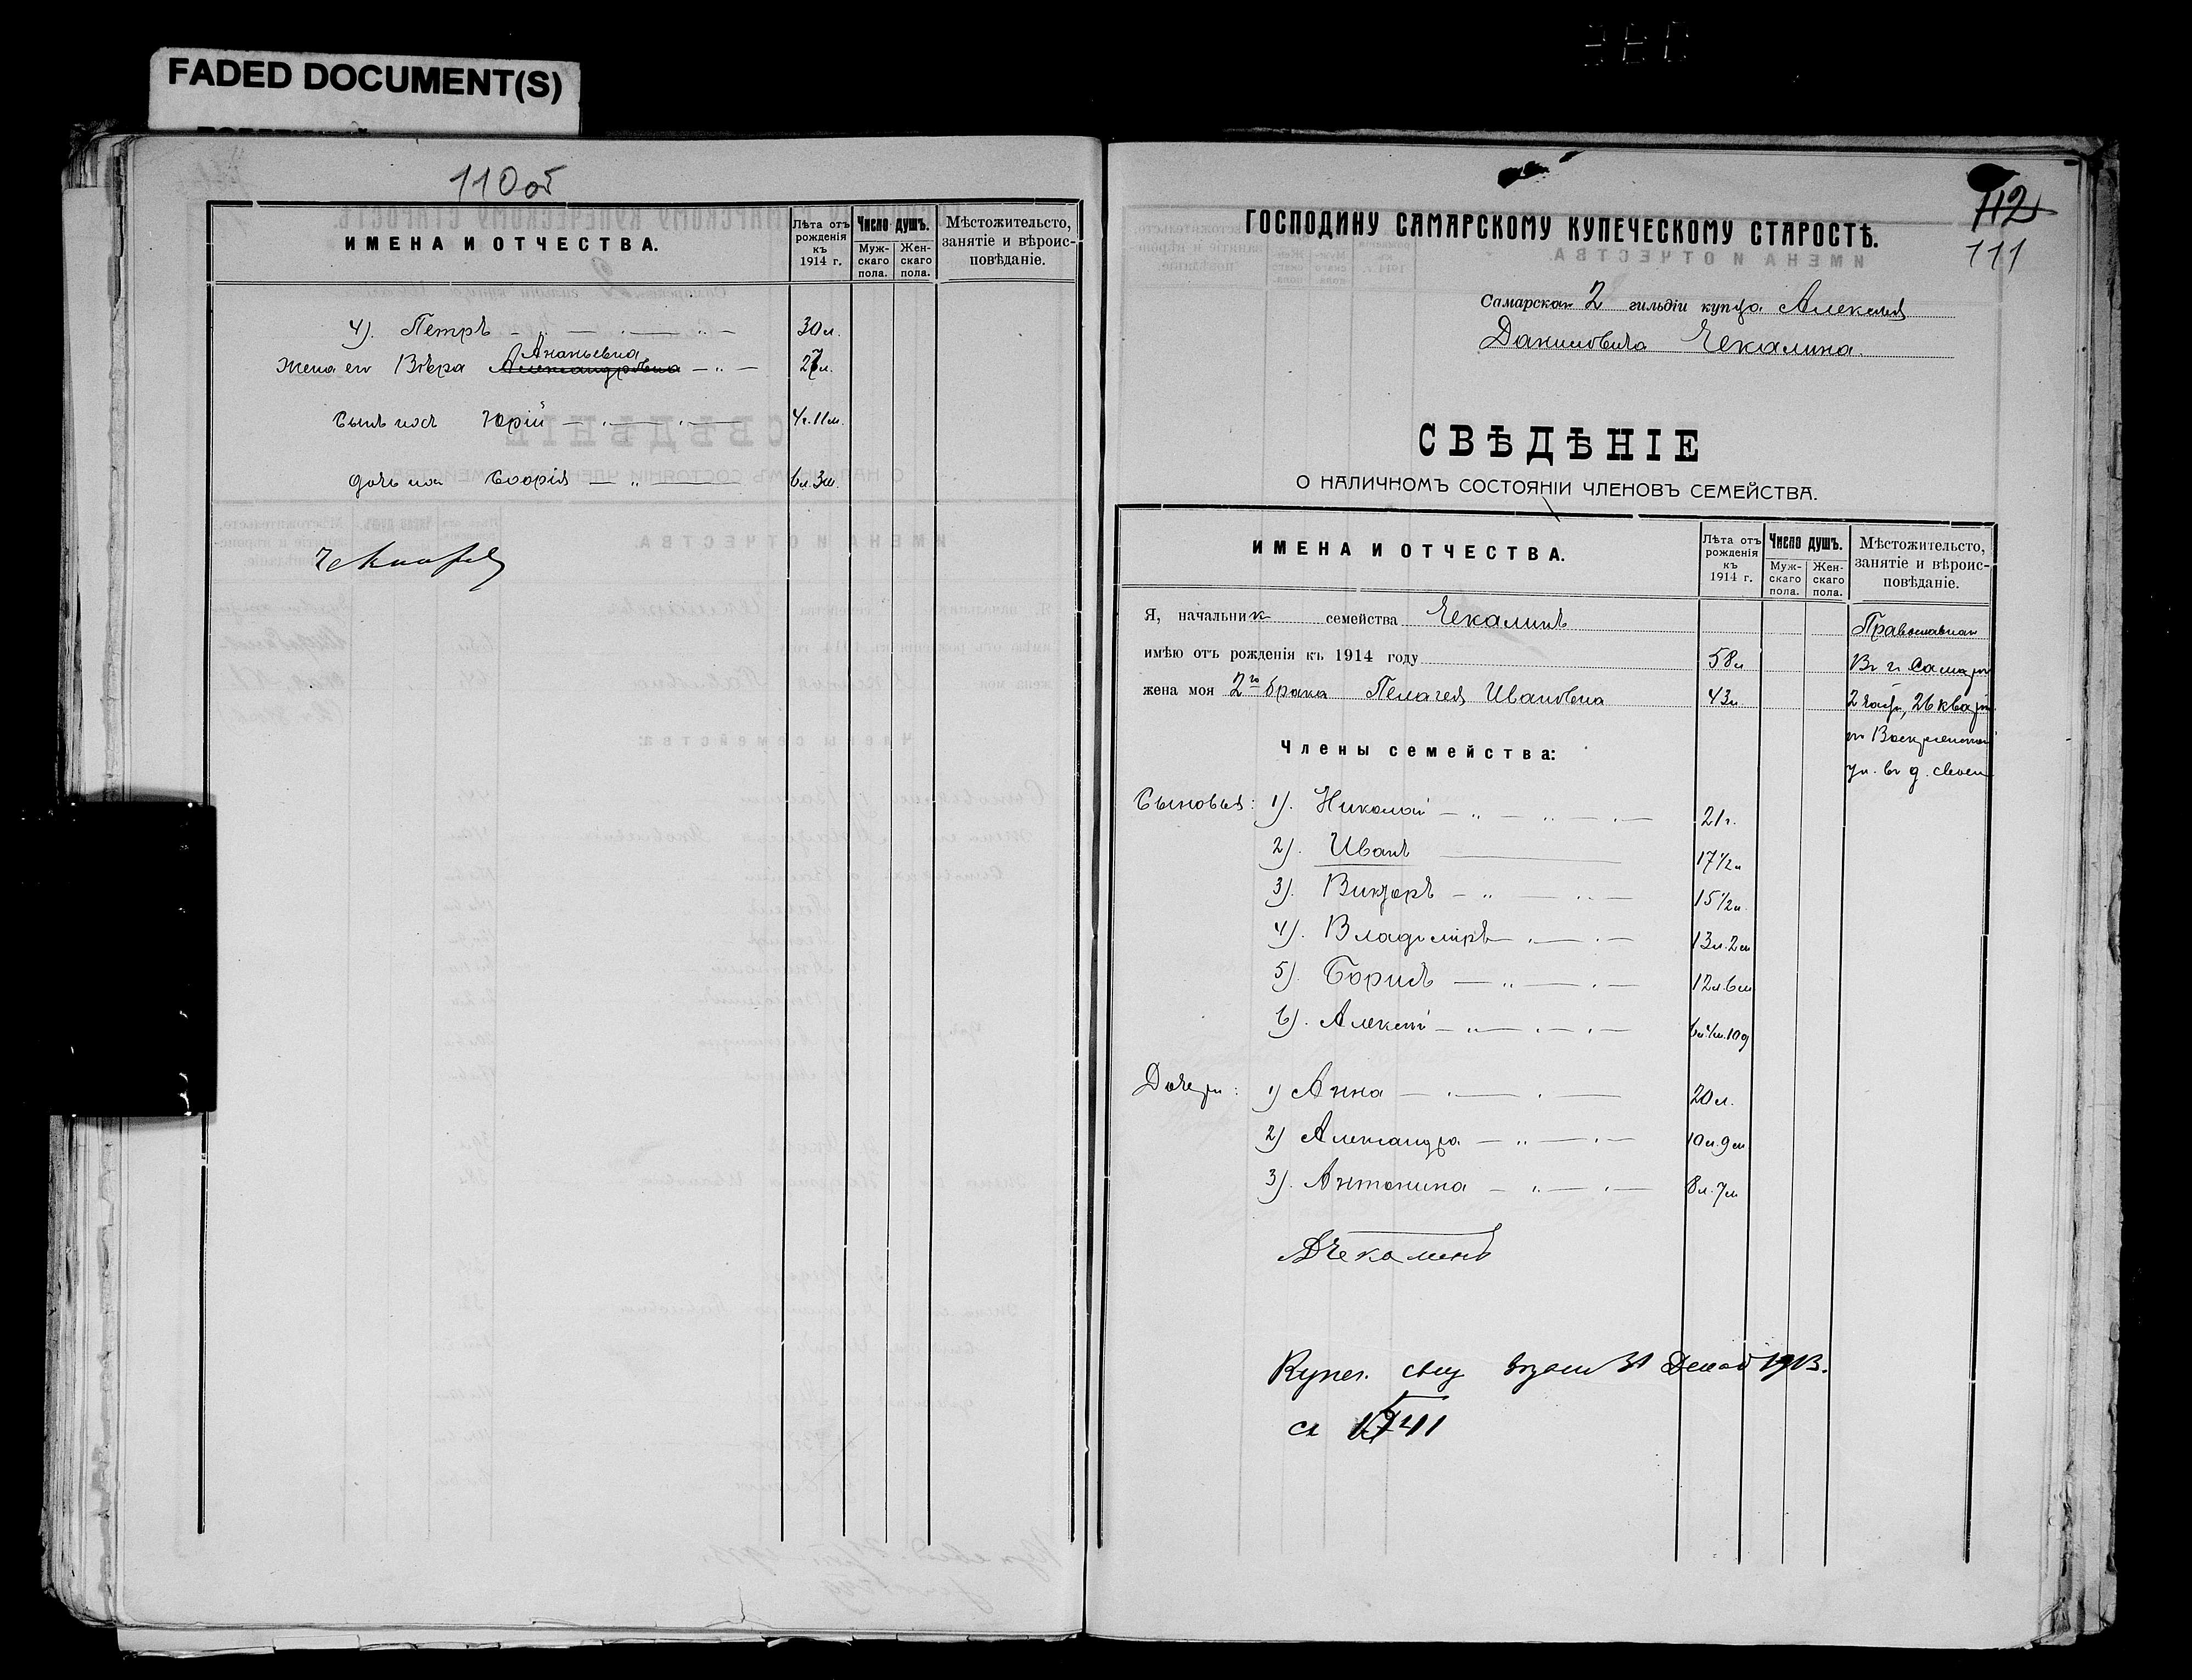 FADED DOCUMENT(S)
110об
ИМЕНА И ОТЧЕСТВА.
Лѣта отъ рожденія къ 1914 г.
Число душъ.
Муж-скаго пола.
Жен-скаго пола.
Мѣстожительсто, занятіе и вѣроис-повѣданіе.
4). Петръ — „ — „ — 30 л.
Ананьевна
Жена его Вѣра Александровна — „ — 27 л.
Сынъ ихъ Юрій — „ — „ — 4 г. 11 м.
дочь их Софія — „ — 6 л. 3 м.
112
111
ГОСПОДИНУ САМАРСКОМУ КУПЕЧЕСКОМУ СТАРОСТѢ.
Самарскаг 2 гильдіи купца Алексея
Даниловича Чекалина.
СВѢДѢНІЕ
О НАЛИЧНОМЪ СОСТОЯНІИ ЧЛЕНОВЪ СЕМЕЙСТВА.
ИМЕНА И ОТЧЕСТВА.
Лѣта отъ рожденія къ 1914 г.
Число душъ.
Муж-скаго пола.
Жен-скаго пола.
Мѣстожительсто, занятіе и вѣроис-повѣданіе.
Я, начальник семейства Чекалинъ Православная
имѣю отъ рожденія къ 1914 году 58 л Въ г. Самаре
жена моя 2го брака Пелагея Ивановна 43 л 2 части, 26 кварт.
Члены семейства: по Воскресенской
ул. въ д. своем
Сыновья: 1). Николай — „ — „ — 21 г.
2). Иванъ 17 1/2 л
3). Викторъ — „ — „ — 15 1/2 л.
4). Владиміръ — „ — 13 л. 2 м
5). Борисъ — „ — „ — 12 л. 6 м
6). Алексѣй — „ — „ — 6 л. 4 м. 10 д
Дочери: 1) Анна — „ — „ — 20 л.
2) Александра — „ — „ — 10 л. 9 м
3). Антонина — „ — „ — 8 л. 7 м
АЧекалинъ
Купеч. свид 31 Декаб 1913.